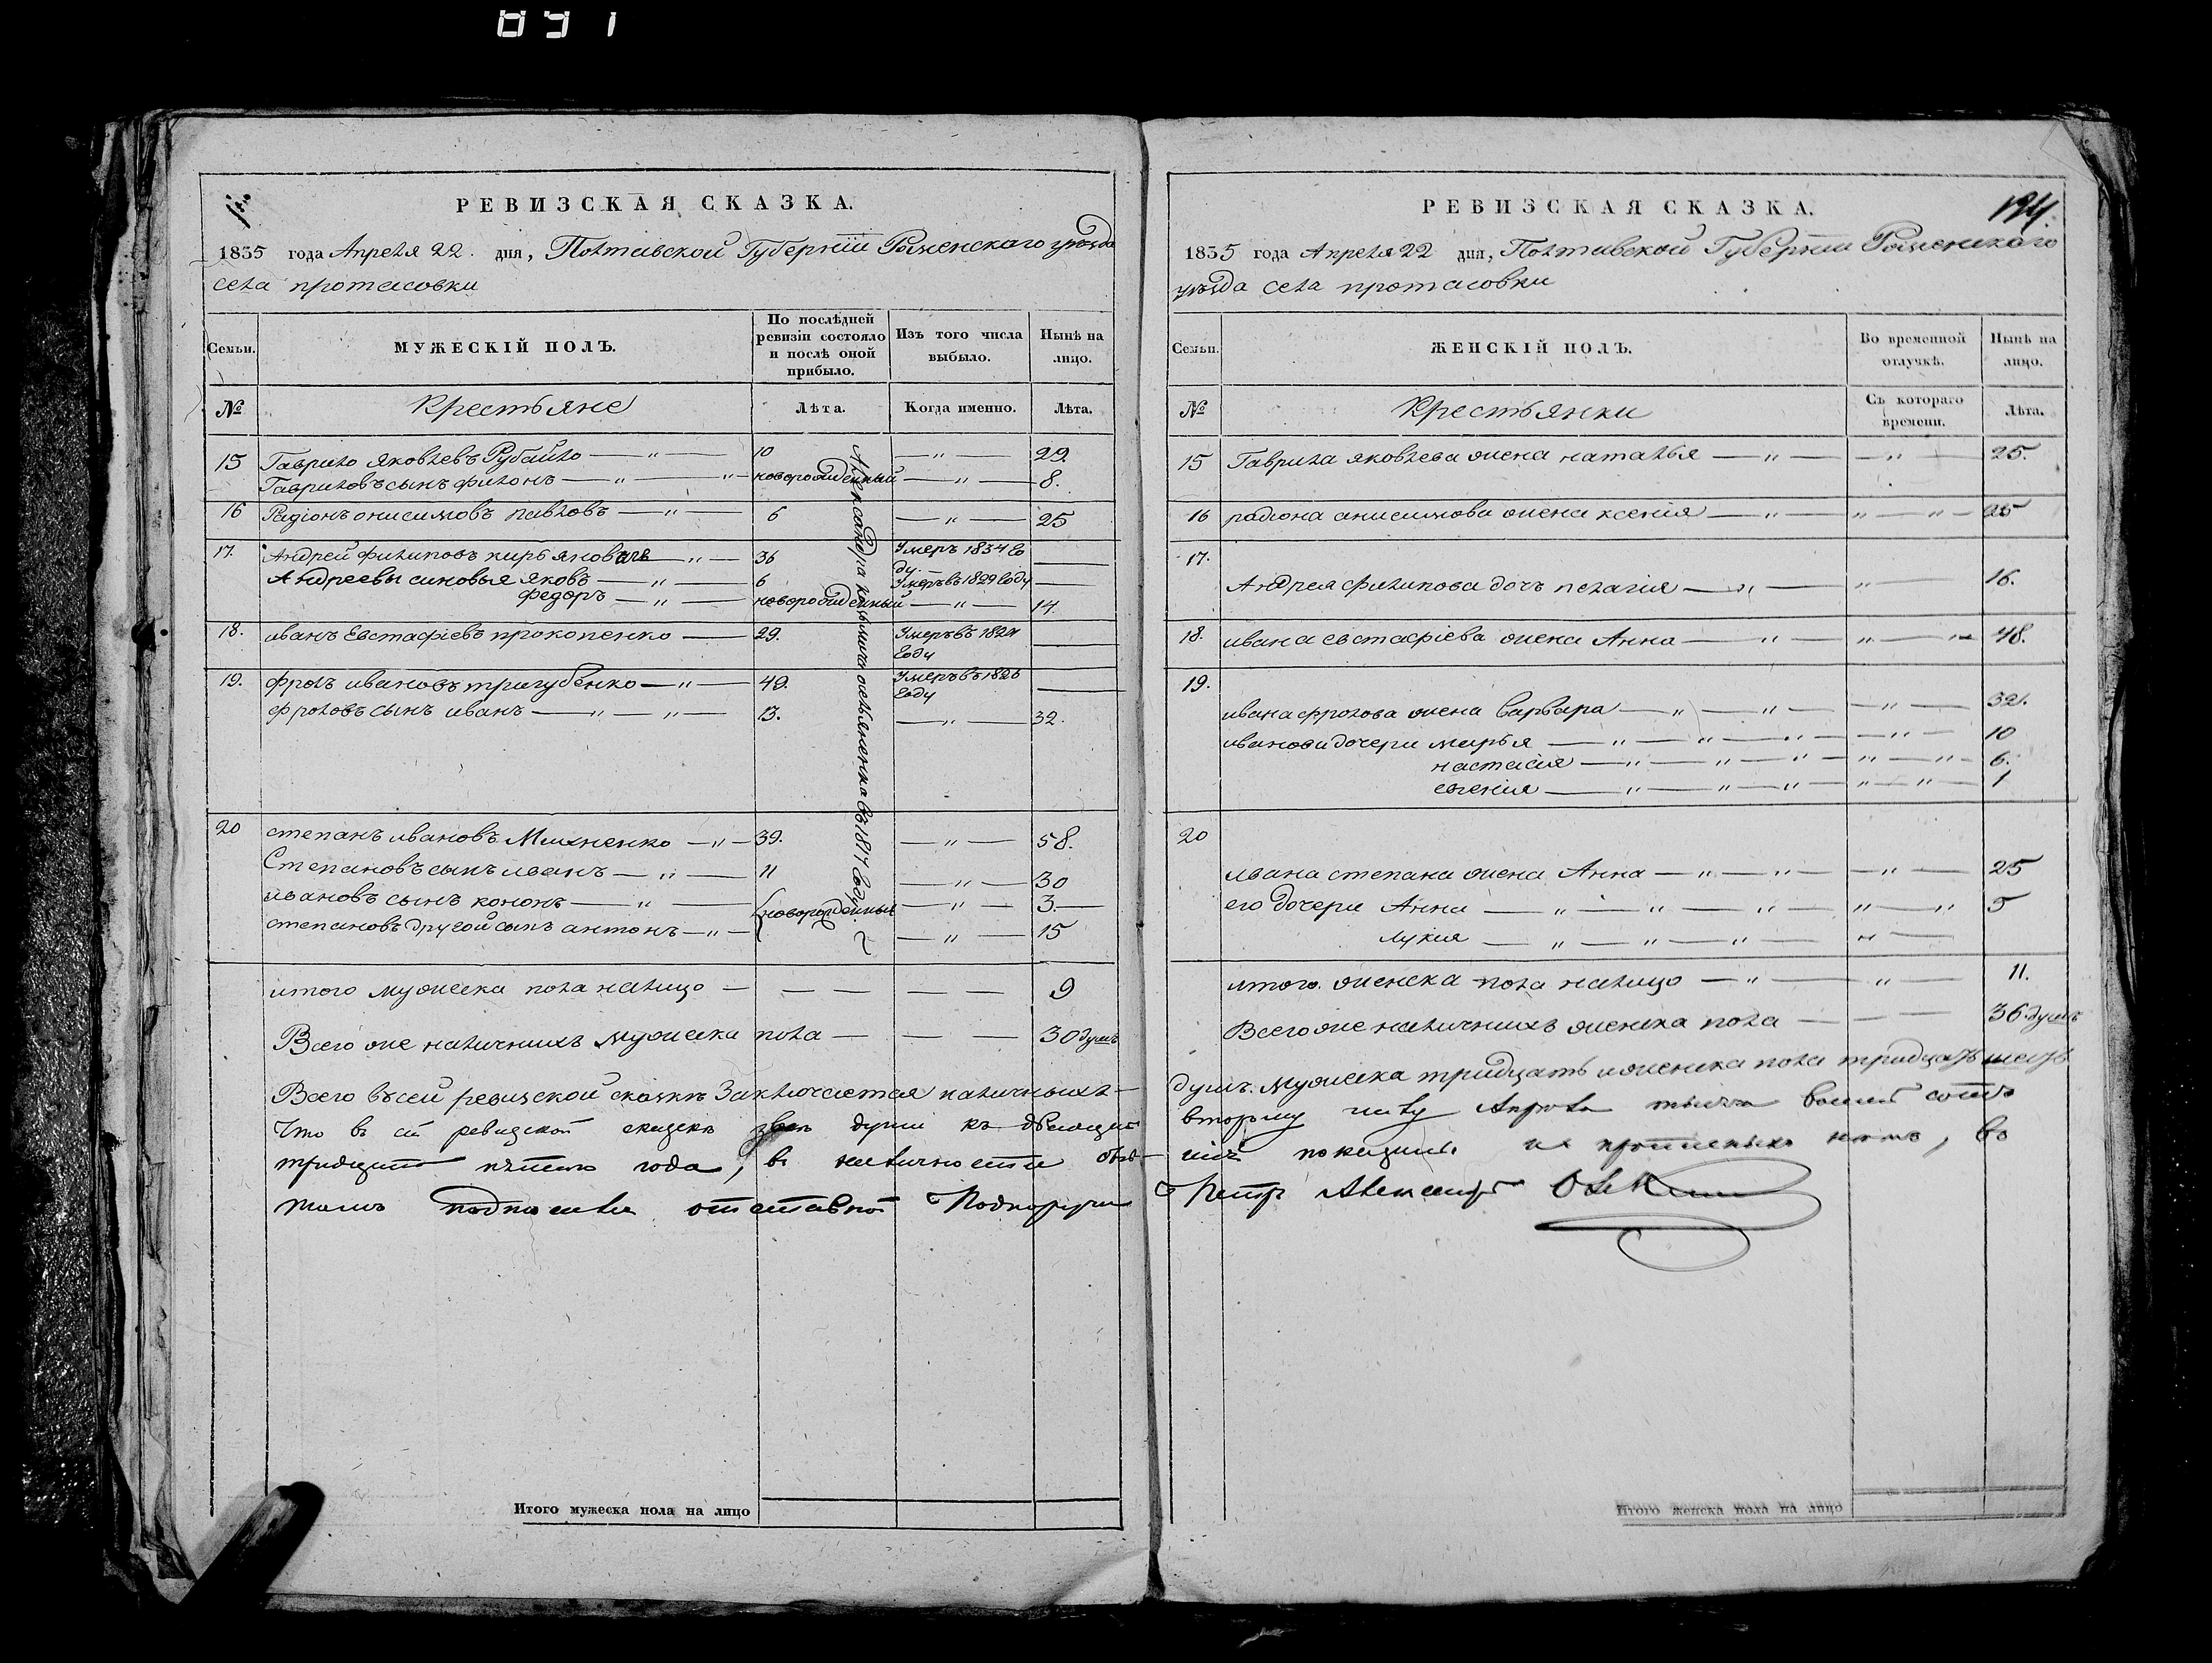 891
РЕВИЗСКАЯ СКАЗКА.
1835 года Апреля 22. дня, Полтавской Губерніи Роменскаго уѣзда
села протасовки
Семьи. МУЖЕСКІЙ ПОЛЪ. По послѣдней ревизіи состояло и послѣ оной прибыло. Изъ того числа выбыло. Нынѣ на лицо.
№ Крестьяне Лѣта. Когда именно. Лѣта.
15 Гаврило яковлевъ Рубайло — " — 10 — " — 29.
Гавриловъ сынъ филонъ — " — " — новорожденный — " — 8.
16 Радіонъ онисимовъ павловъ — " — 6 — " — 25
17. Андрей филиповъ кирьяновъ — " — 36 Умеръ 1834 го
ду. —
Андреевы синовья яковъ — " — 6 Умеръ въ 1829 году —
федоръ — " — новорожденный — " — 14
18. иванъ Евстафіевъ прокопенко — 29. Умеръ въ 1824
году —
19. фролъ ивановъ тригубенко — " — 49. Умеръ въ 1826
году —
фроловъ сынъ иванъ — " — " — 13. — " — 32.
20 степанъ ивановъ Михненко — " — 39. — " — 58.
Степановъ сынъ иванъ — " — 11 — " — 30
ивановъ сынъ кононъ — " — новорожденныя — " — 3. —
степановъ другой сынъ антонъ — " — — " — 15
итого мужеска пола налицо — — — — — — 9
Всего же наличнихъ мужеска пола — — — 30 душъ
Всего въ сей ревизской сказкѣ Заключается наличныхъ —
Что въ сей ревизской сказкѣ все души къ двадцать
тридцать пятого года, в наличности
томъ подписался отставной Подпоручик
Итого мужеска пола на лицо
Александра в 1817 году
РЕВИЗСКАЯ СКАЗКА.
194.
1835 года Апреля 22 дня, Полтавской Губерніи Роменскаго
уѣзда села протасовки
Семьи. ЖЕНСКІЙ ПОЛЪ. Во временной отлучкѣ. Нынѣ на лицо.
№ Крестьянки Съ котораго времени. Лѣта.
15 Гаврила яковлева жена наталья — " — — " — 25.
16 радіона анисимова жена ксенія — " — " — " — 25
17.
Андрея филипова дочъ пелагія — " — " 16.
18. ивана евстафіева жена Анна — " — " — " — 48.
19.
ивана фролова жена варвара — " — " — — " — 32.
иванова дочери марья — " — " — " — — " — 10
настасія — " — " — " — " — " — 6.
евгенія — " — " — " — " — " — 1
20
ивана степана жена Анна — " — " — — " — 25
его дочери Анна — " — " — " — " — " 5
лукия — " — " — " — " —
итого женска пола налицо — " — — " — 11.
Всего же наличнихъ женска пола — — — 36 душъ
душъ. Мужеска тридцать и женска пола тридцать шесть
второму числу Апреля тысяча восемъ сотъ
показаны и нетъ, во
Петр Александр
Итого женска пола на лицо